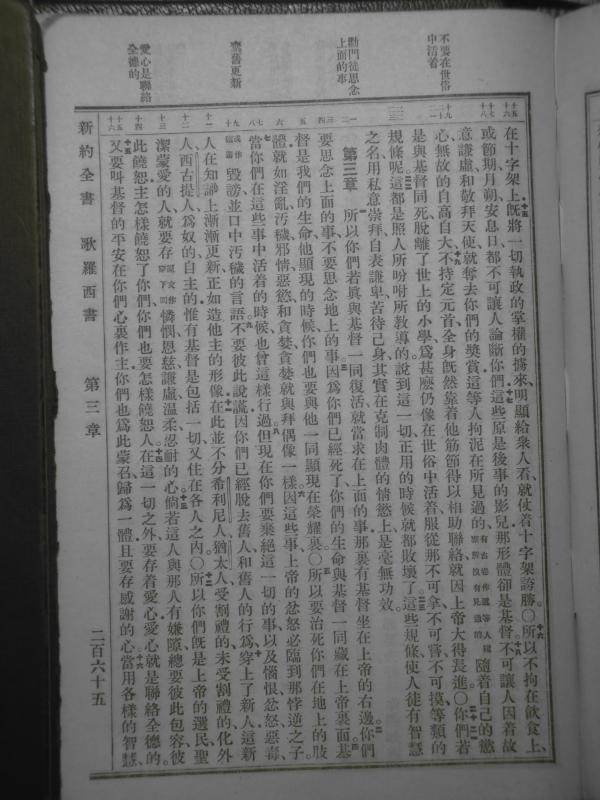 不要在世俗
中活着
勸門徒思念
上面的事
棄舊更新
愛心是聯絡
全德的
在十字架上旣將一切執政的掌權的擄來、明顯給衆人看就仗着十字架誇勝。〇所以不拘在飮食上、
或節期月朔安息日都不可讓人論斷你們這些原是後事的影兒那形體卻是基督不可讓人因着故
意謙虛和敬拜天使就奪去你們的獎賞這等人拘泥在所見過的隨着自己的慾
心無故的自高自大不持定元首全身旣然靠着他筋節得以相助聯絡就因上帝大得長進〇你們若
是與基督同死脫離了世上的小學爲甚麼仍像在世俗中活着服從那不可拿不可嘗不可摸等類的
規條呢這都是照人所吩咐所教導的說到這一切正用的時候就都敗壞了這些規條使人徒有智慧
之名用私意崇拜自表謙卑苦待己身、其實在克制肉體的情慾上是毫無功效。
第三章 所以你們若眞與基督一同復活就當求在上面的事那裏有基督坐在上帝的右邊你們
要思念上面的事不要思念地上的事因爲你們已經死了你們的生命與基督一同藏在上帝裏面基
督是我們的生命他顯現的時候你們也要與他一同顯現在榮耀裏。〇所以要治死你們在地上的肢
體就如淫亂汚穢邪情惡慾和貪婪貪婪就與拜偶像一樣因這些事上帝的忿怒必臨到那悖逆之子。
當你們在這些事中活着的時候也曾這樣行過但現在你們要棄絕這一切的事以及惱恨忿怒惡毒、
毀謗並口中汚穢的言語不要彼此說謊因你們已經脫去舊人和舊人的行爲穿上了新人這新
人在知識上漸漸更新正如造他主的形像在此並不分希利尼人猶太人受割禮的未受割禮的化外
人西古提人爲奴的自主的惟有基督是包括一切又住在各人之內〇所以你們旣是上帝的選民聖
潔蒙愛的人就要存憐憫恩慈謙虛溫柔忍耐的心倘若這人與那人有嫌隙總要彼此包容彼
此饒恕主怎樣饒恕了你們你們也要怎樣饒恕人在這一切之外要存着愛心愛心就是聯絡全德的。
又要叫基督的平安在你們心裏作主你們也爲此蒙召歸爲一體且要存感謝的心當用各樣的智慧、
新約全書 歌羅西書 第三章 二百六十五